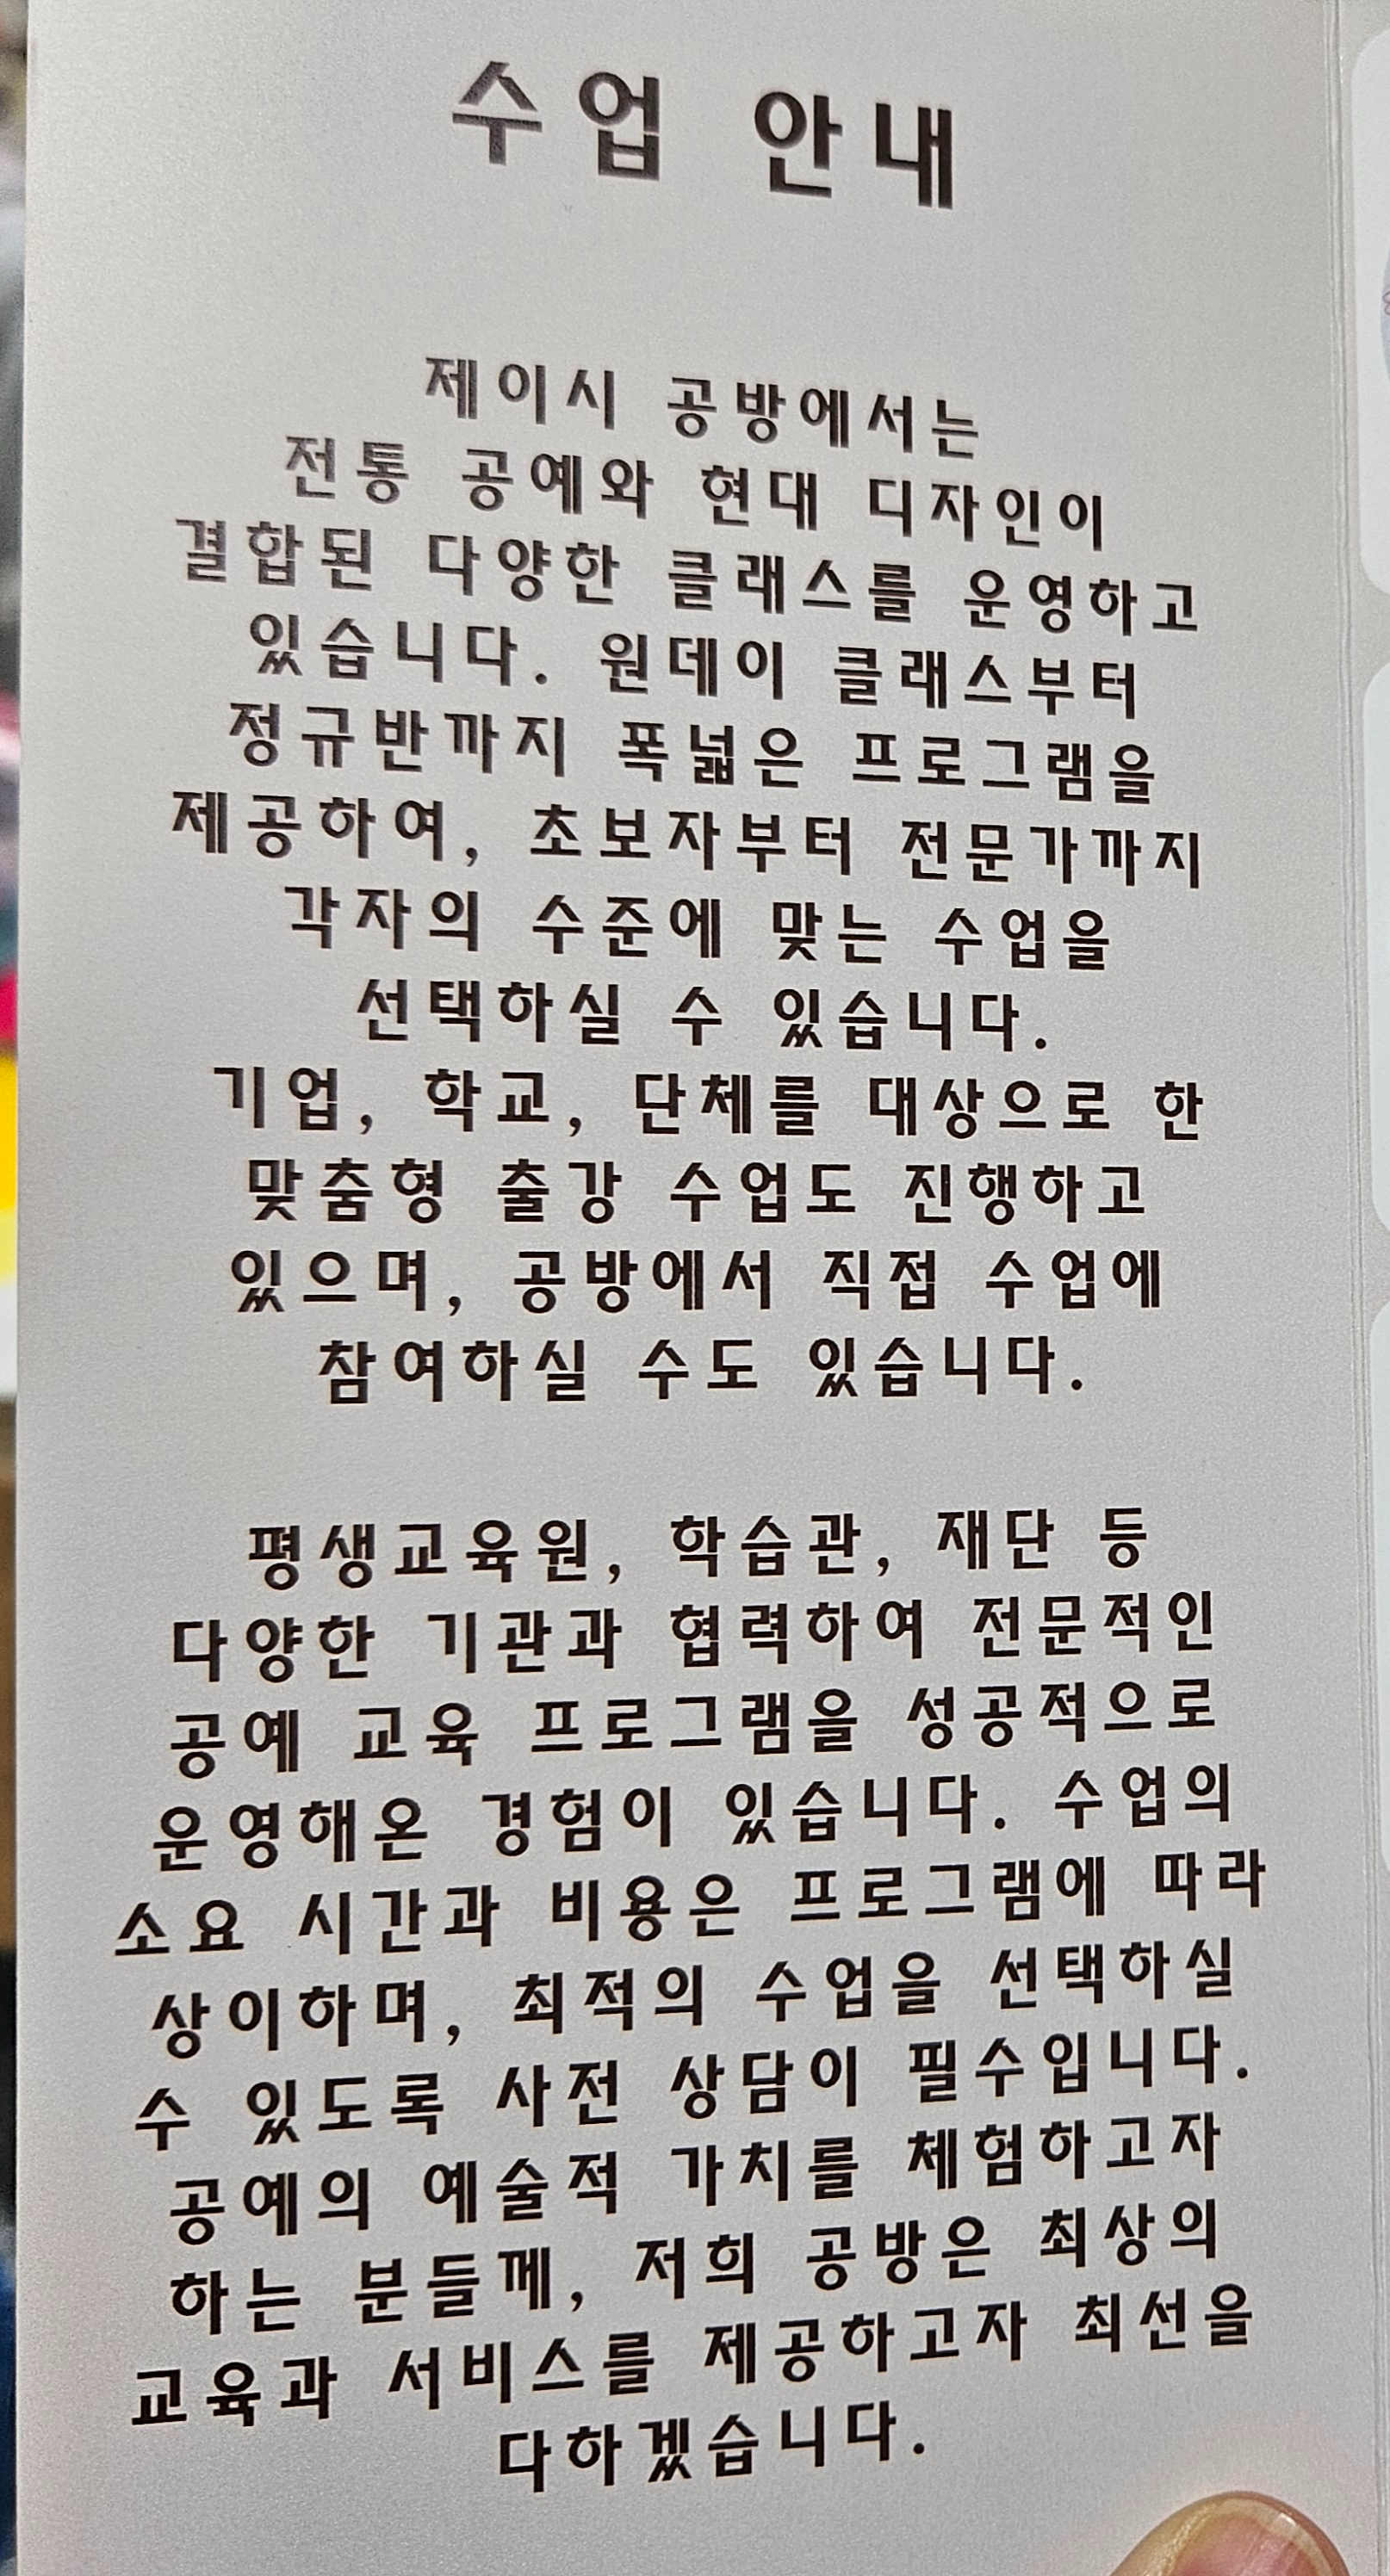 수업 안내
제이시 공방에서는
전통 공예와 현대 디자인이
결합된 다양한 클래스를 운영하고
있습니다. 원데이 클래스부터
정규반까지 폭넓은 프로그램을
제공하여, 초보자부터 전문가까지
각자의 수준에 맞는 수업을
선택하실 수 있습니다.
기업, 학교, 단체를 대상으로 한
맞춤형 출강 수업도 진행하고
있으며, 공방에서 직접 수업에
참여하실 수도 있습니다.
평생교육원, 학습관, 재단 등
다양한 기관과 협력하여 전문적인
공예 교육 프로그램을 성공적으로
운영해온 경험이 있습니다. 수업의
소요 시간과 비용은 프로그램에 따라
상이하며, 최적의 수업을 선택하실
수 있도록 사전 상담이 필수입니다.
공예의 예술적 가치를 체험하고자
하는 분들께, 저희 공방은 최상의
교육과 서비스를 제공하고자 최선을
다하겠습니다.